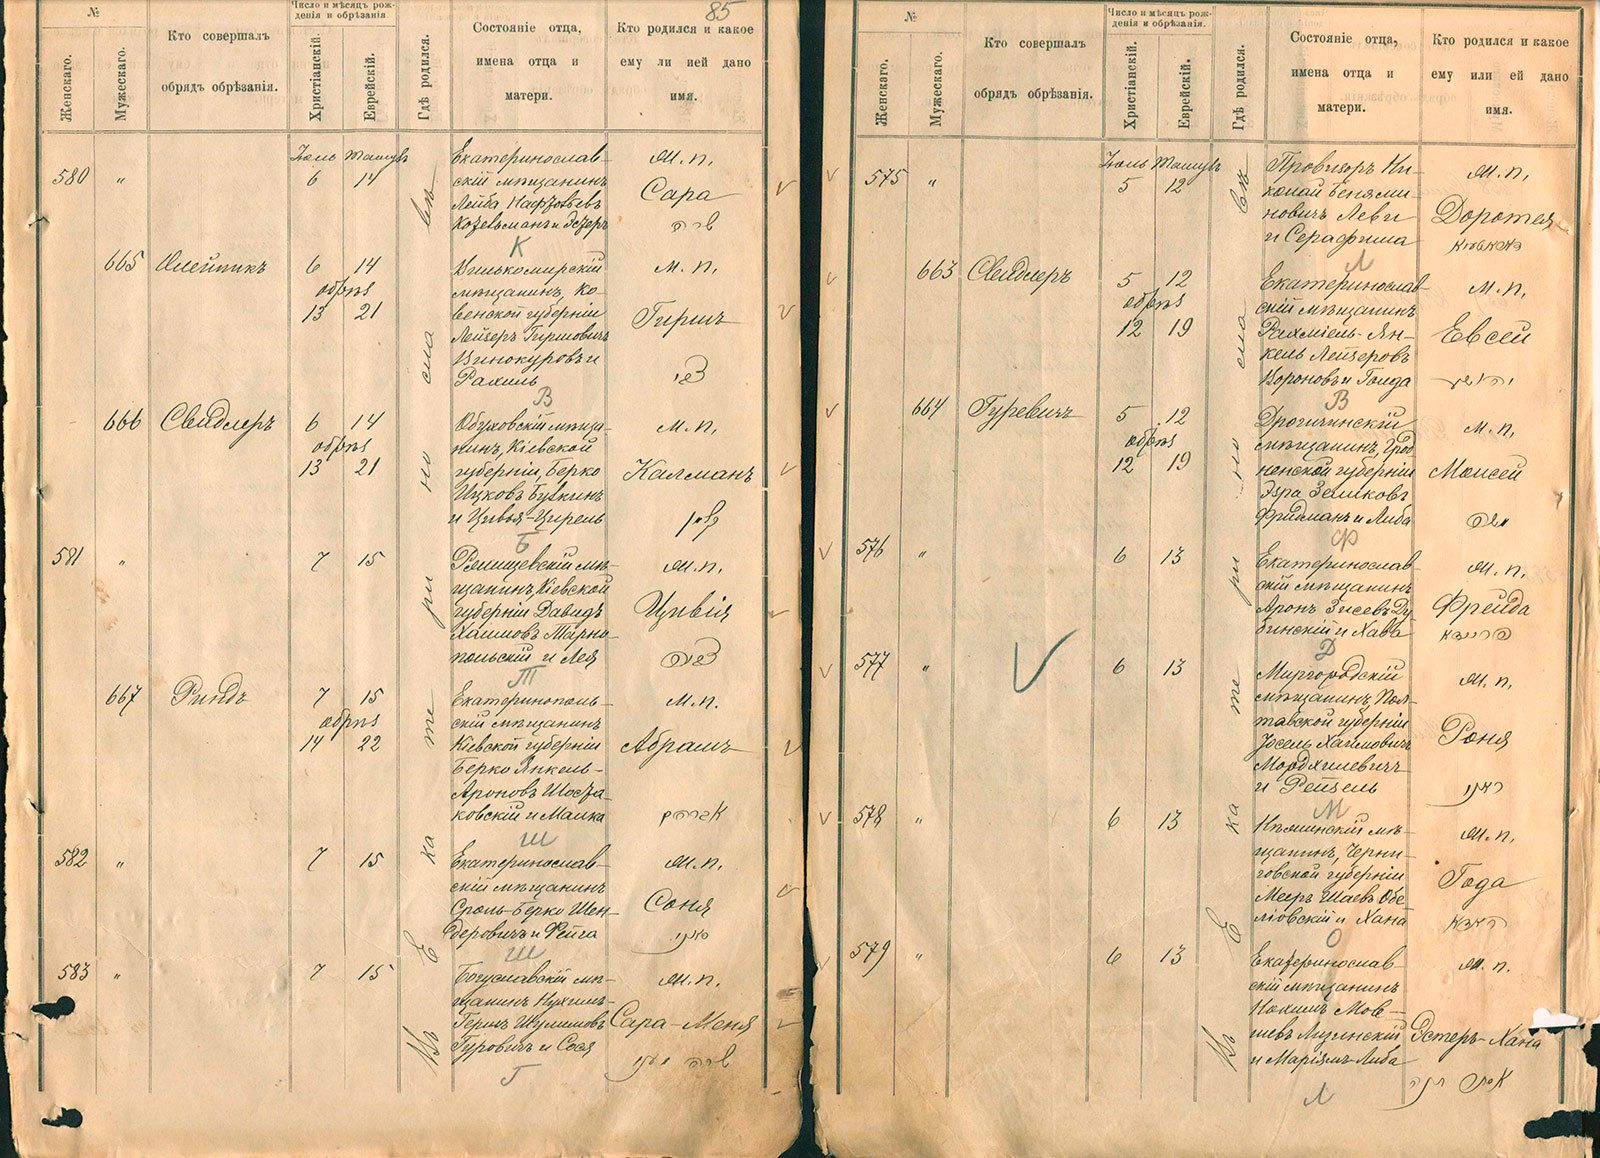 85
№
Женскаго.
Мужескаго.
Кто совершалъ
обрядъ обрѣзанія.
Число и мѣсяцъ рож-
денія и обрѣзанія.
Христіанскій.
Еврейскій.
Гдѣ родился.
Состояніе отца,
имена отца и
матери.
Кто родился и какое
ему или ей дано
имя.
Въ Екатеринославѣ
580 " Іюль Тамузъ
6 14
Екатеринослав-
скій мѣщанинъ
Лейба
и Эстеръ
К
м. п.
Сара
שרה
665 Олейникъ 6 14
обрѣз
13 21
Вилькомирскій
мѣщанинъ, Ко-
венской губерніи
Лейзеръ Гиршовичъ
Винокуровъ и
Рахиль
В
м. п.
Гиршъ
צבי
666 Свидлеръ 6 14
обрѣз
13 21
Обуховскій мѣща-
нинъ, Кіевской
губерніи, Берко
Ицковъ Буткинъ
и Цивья-Цирель
Б
м. п.
Калманъ
קלמן
581 " 7 15
мѣ-
щанинъ, Кіевской
губерніи Давидъ
Хаимовъ Тарно-
польскій и Лея
Т
м. п.
Цивія
צביה
667 Риндъ 7 15
обрѣз
14 22
Екатеринополь-
скій мѣщанинъ
Кіевской губерніи
Берко Янкель-
Ароновъ Шоста-
ковскій и Малка
Ш
м. п.
Абрамъ
אברהם
582 " 7 15
Екатеринослав-
скій мѣщанинъ
Сроль-Берко Шен-
деровичъ и Фейга
Ш
м. п.
Соня
סאני
583 " 7 15
Богуславскій мѣ-
щанинъ Нухимъ-
Гершъ Шулимовъ
Гуровичъ и Сося
Г
м. п.
Сара-Меня
שרה מעני
№
Женскаго.
Мужескаго.
Кто совершалъ
обрядъ обрѣзанія.
Число и мѣсяцъ рож-
денія и обрѣзанія.
Христіанскій.
Еврейскій.
Гдѣ родился.
Состояніе отца,
имена отца и
матери.
Кто родился и какое
ему или ей дано
имя.
Въ Екатеринославѣ
575 " Іюль Тамузъ
5 12
Провизоръ Ни-
колай Беньями-
новичъ Леви
и Серафима
Л
м. п.
Доротея
663 Свидлеръ 5 12
обрѣз
12 19
Екатеринослав-
скій мѣщанинъ
Рахміель-Ян-
кель Лейзеровъ
Вороновъ и Голда
В
м. п.
Евсей
יהושע
664 Гуревичъ 5 12
обрѣз
12 19
Дрогичинскій
мѣщанинъ, Грод-
ненской губерніи
Эзра Зеликовъ
Фридманъ и Либа
Ф
м. п.
Моисей
משה
576 " 6 13
Екатеринослав-
скій мѣщанинъ
Аронъ Зисевъ Ду-
бинскій и Хава
Д
м. п.
Фрейда
פריידא
577 " 6 13
Миргородскій
мѣщанинъ, Пол-
тавской губерніи
Іосель Хаимовичъ
Мордхилевичъ
и Рейзель
М
м. п.
Роня
ראני
578 " 6 13
мѣ-
щанинъ, Черни-
говской губерніи
Мееръ Шаевъ Обе-
ліовскій и Хана
О
м. п.
Года
האדא
579 " 6 13
Екатеринослав-
скій мѣщанинъ
Нохимъ Мов-
шевъ
и Маріямъ-Либа
Л
м. п.
Эстеръ-Хана
אסתר חנה